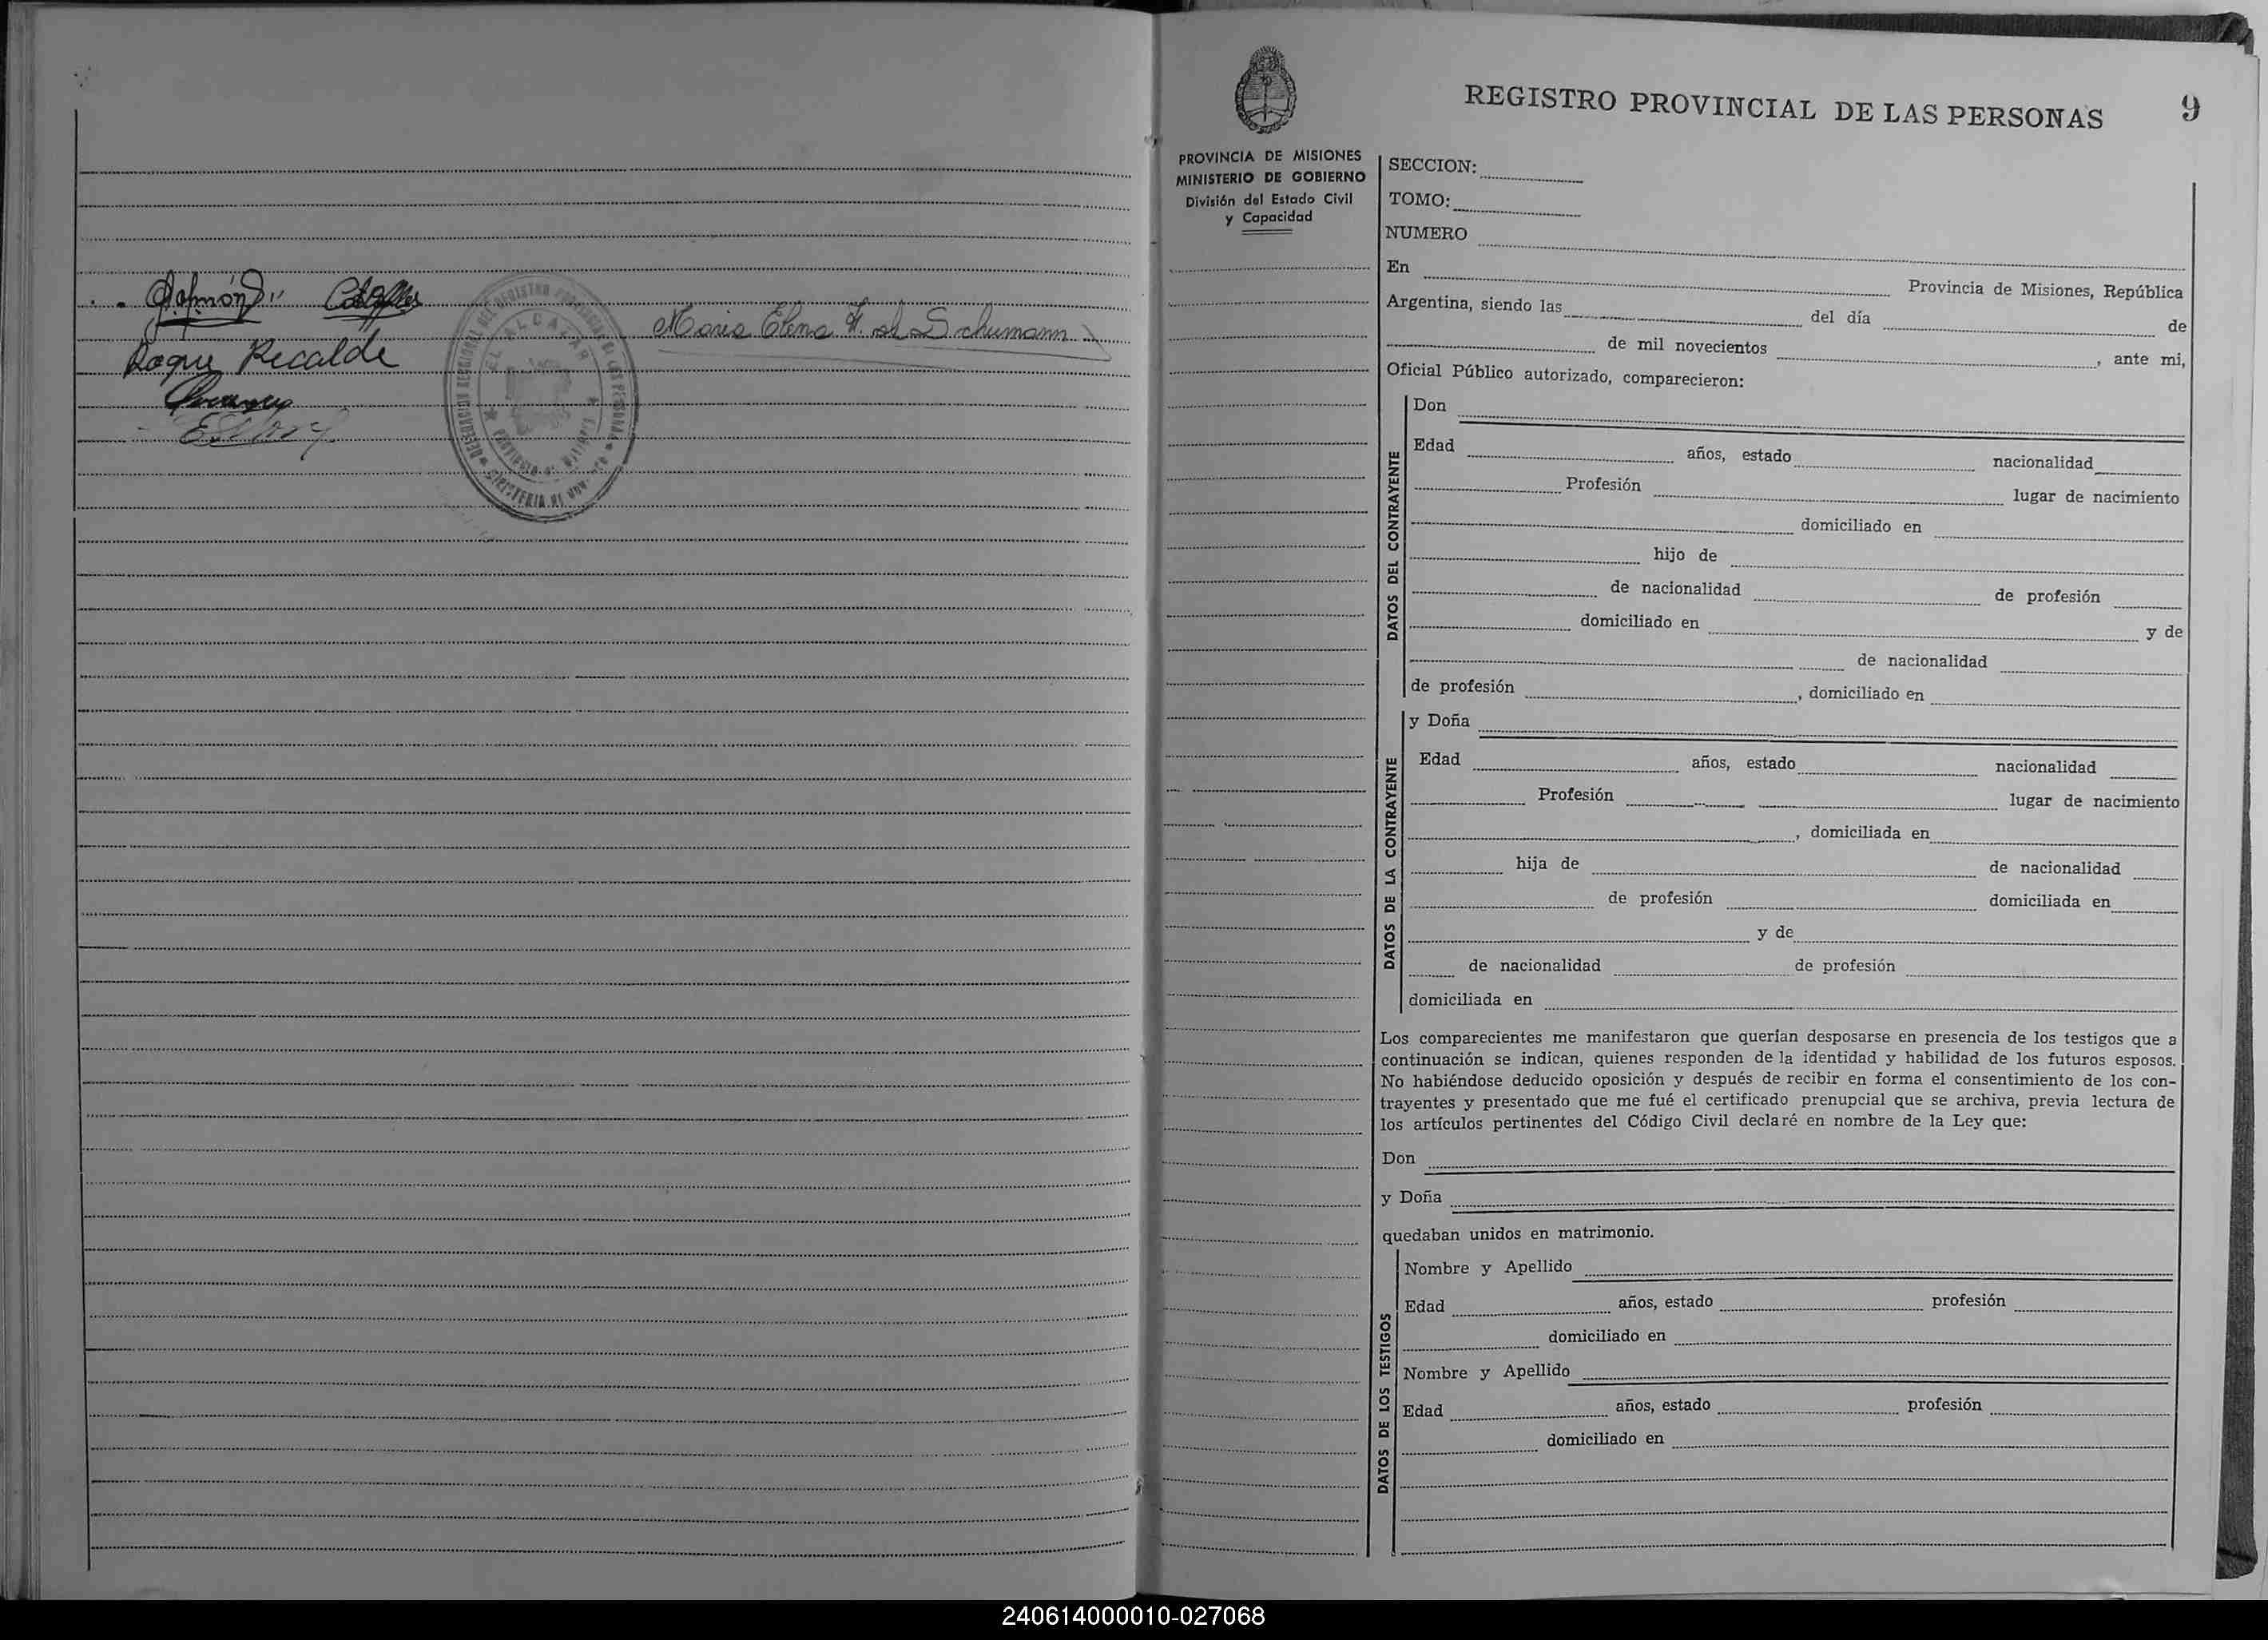 Roque Recalde
Maria Elena F. de Schumann
EL ALCAZAR
PROVINCIA DE MISIONES
MINISTERIO DE GOBIERNO
División del Estado Civil
y Capacidad
REGISTRO PROVINCIAL DE LAS PERSONAS 9
SECCION:
TOMO:
NUMERO
En Provincia de Misiones, República
Argentina, siendo las del día de
de mil novecientos , ante mi,
Oficial Público autorizado, comparecieron:
DATOS DEL CONTRAYENTE
Don
Edad años, estado nacionalidad
Profesión lugar de nacimiento
domiciliado en
hijo de
de nacionalidad de profesión
domiciliado en y de
de nacionalidad
de profesión , domiciliado en
DATOS DE LA CONTRAYENTE
y Doña
Edad años, estado nacionalidad
Profesión lugar de nacimiento
, domiciliada en
hija de de nacionalidad
de profesión domiciliada en
y de
de nacionalidad de profesión
domiciliada en
Los comparecientes me manifestaron que querían desposarse en presencia de los testigos que a
continuación se indican, quienes responden de la identidad y habilidad de los futuros esposos.
No habiéndose deducido oposición y después de recibir en forma el consentimiento de los con-
trayentes y presentado que me fué el certificado prenupcial que se archiva, previa lectura de
los artículos pertinentes del Código Civil declaré en nombre de la Ley que:
Don
y Doña
quedaban unidos en matrimonio.
DATOS DE LOS TESTIGOS
Nombre y Apellido
Edad años, estado profesión
domiciliado en
Nombre y Apellido
Edad años, estado profesión
domiciliado en
240614000010-027068